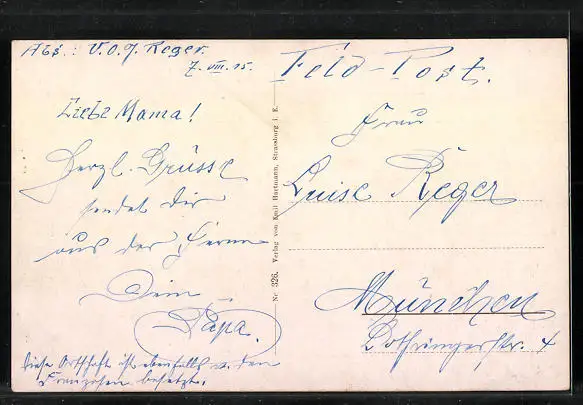 Abs.: V.O.J. Reger.
7. VIII. 15.
Liebe Mama!
Herzl. Grüsse
sendet Dir
aus der Ferne
Dein
Papa.
Diese Ortschaft ist ebenfalls v. den
Franzosen besetzt.
Nr. 326. Verlag von Emil Hartmann, Strassburg i. E.
Feld-Post.
Frau
Luise Reger
München
Lothringerstr. 4